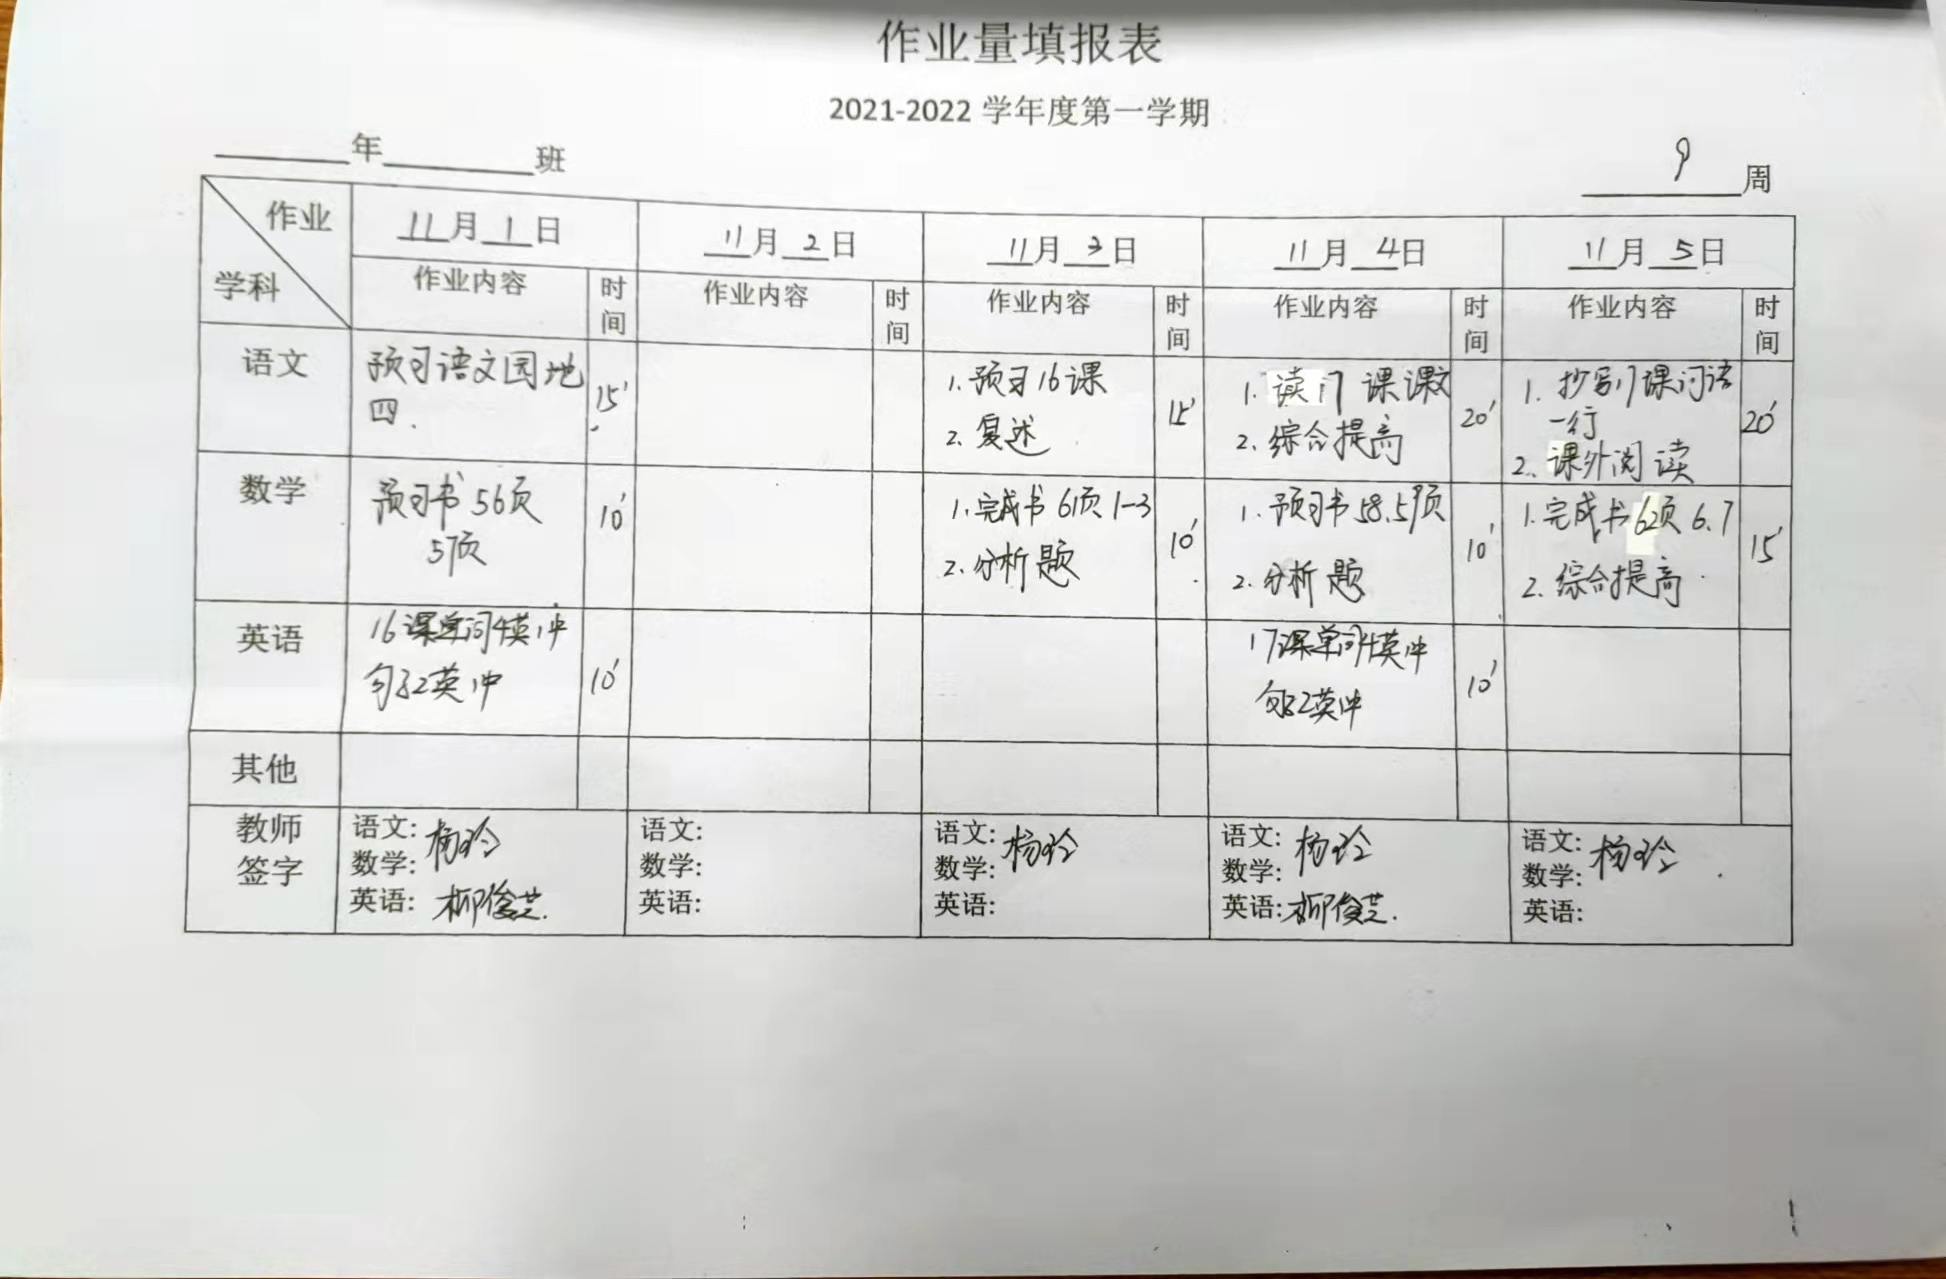 作业量填报表
2021-2022 学年度第一学期
年 班
9 周
作业
学科
11月1日
11月2日
11月3日
11月4日
11月5日
作业内容 时间
作业内容 时间
作业内容 时间
作业内容 时间
作业内容 时间
语文
预习语文园地
四.
15'
1.预习16课
2.复述
15'
1.读17课课文
2.综合提高
20'
1.抄写17课词语
一行
2.课外阅读
20'
数学
预习书56页
57页
10'
1.完成书61页1-3
2.分析题
10'
1.预习书58.59页
2.分析题
10'
1.完成书62页6.7
2.综合提高
15'
英语
16课单词4英1中
句子2英1中
10'
17课单词4英1中
句子2英1中
10'
其他
教师
签字
语文: 杨玲
数学:
英语: 柳俊芝.
语文:
数学:
英语:
语文: 杨玲
数学:
英语:
语文: 杨玲
数学:
英语: 柳俊芝.
语文: 杨玲
数学:
英语: